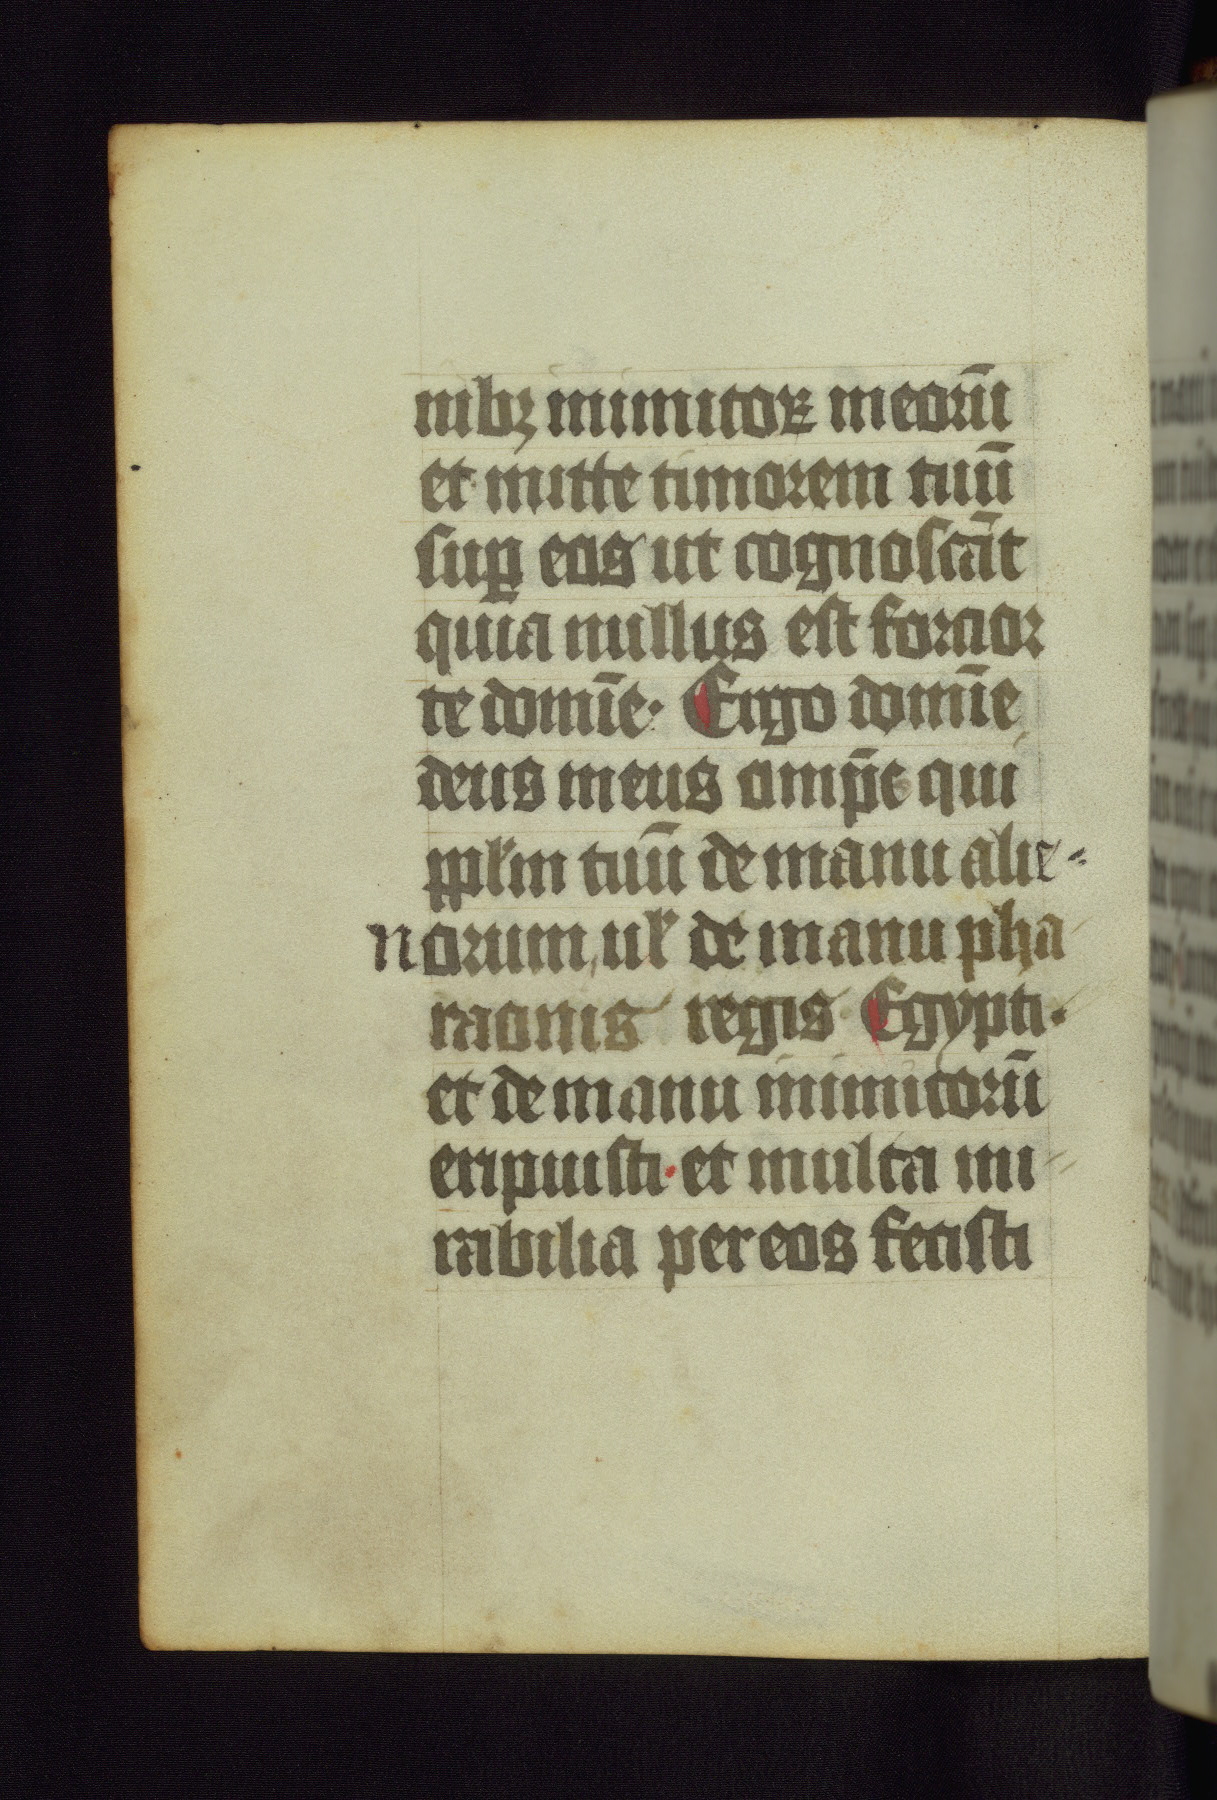 nibꝫ inimicoꝝ meorū
et mitte timorem tuū
suꝑ eos ut cognoscāt
quia nullus est forcior
te domīe· Ergo domīe
deus meus omp̄e qui
pplm tuū de manu alie-
norum ul de manu pha
raonis regis Egypti·
et de manu inimicorū
eripuisti· et multa mi-
rabilia per eos fecisti